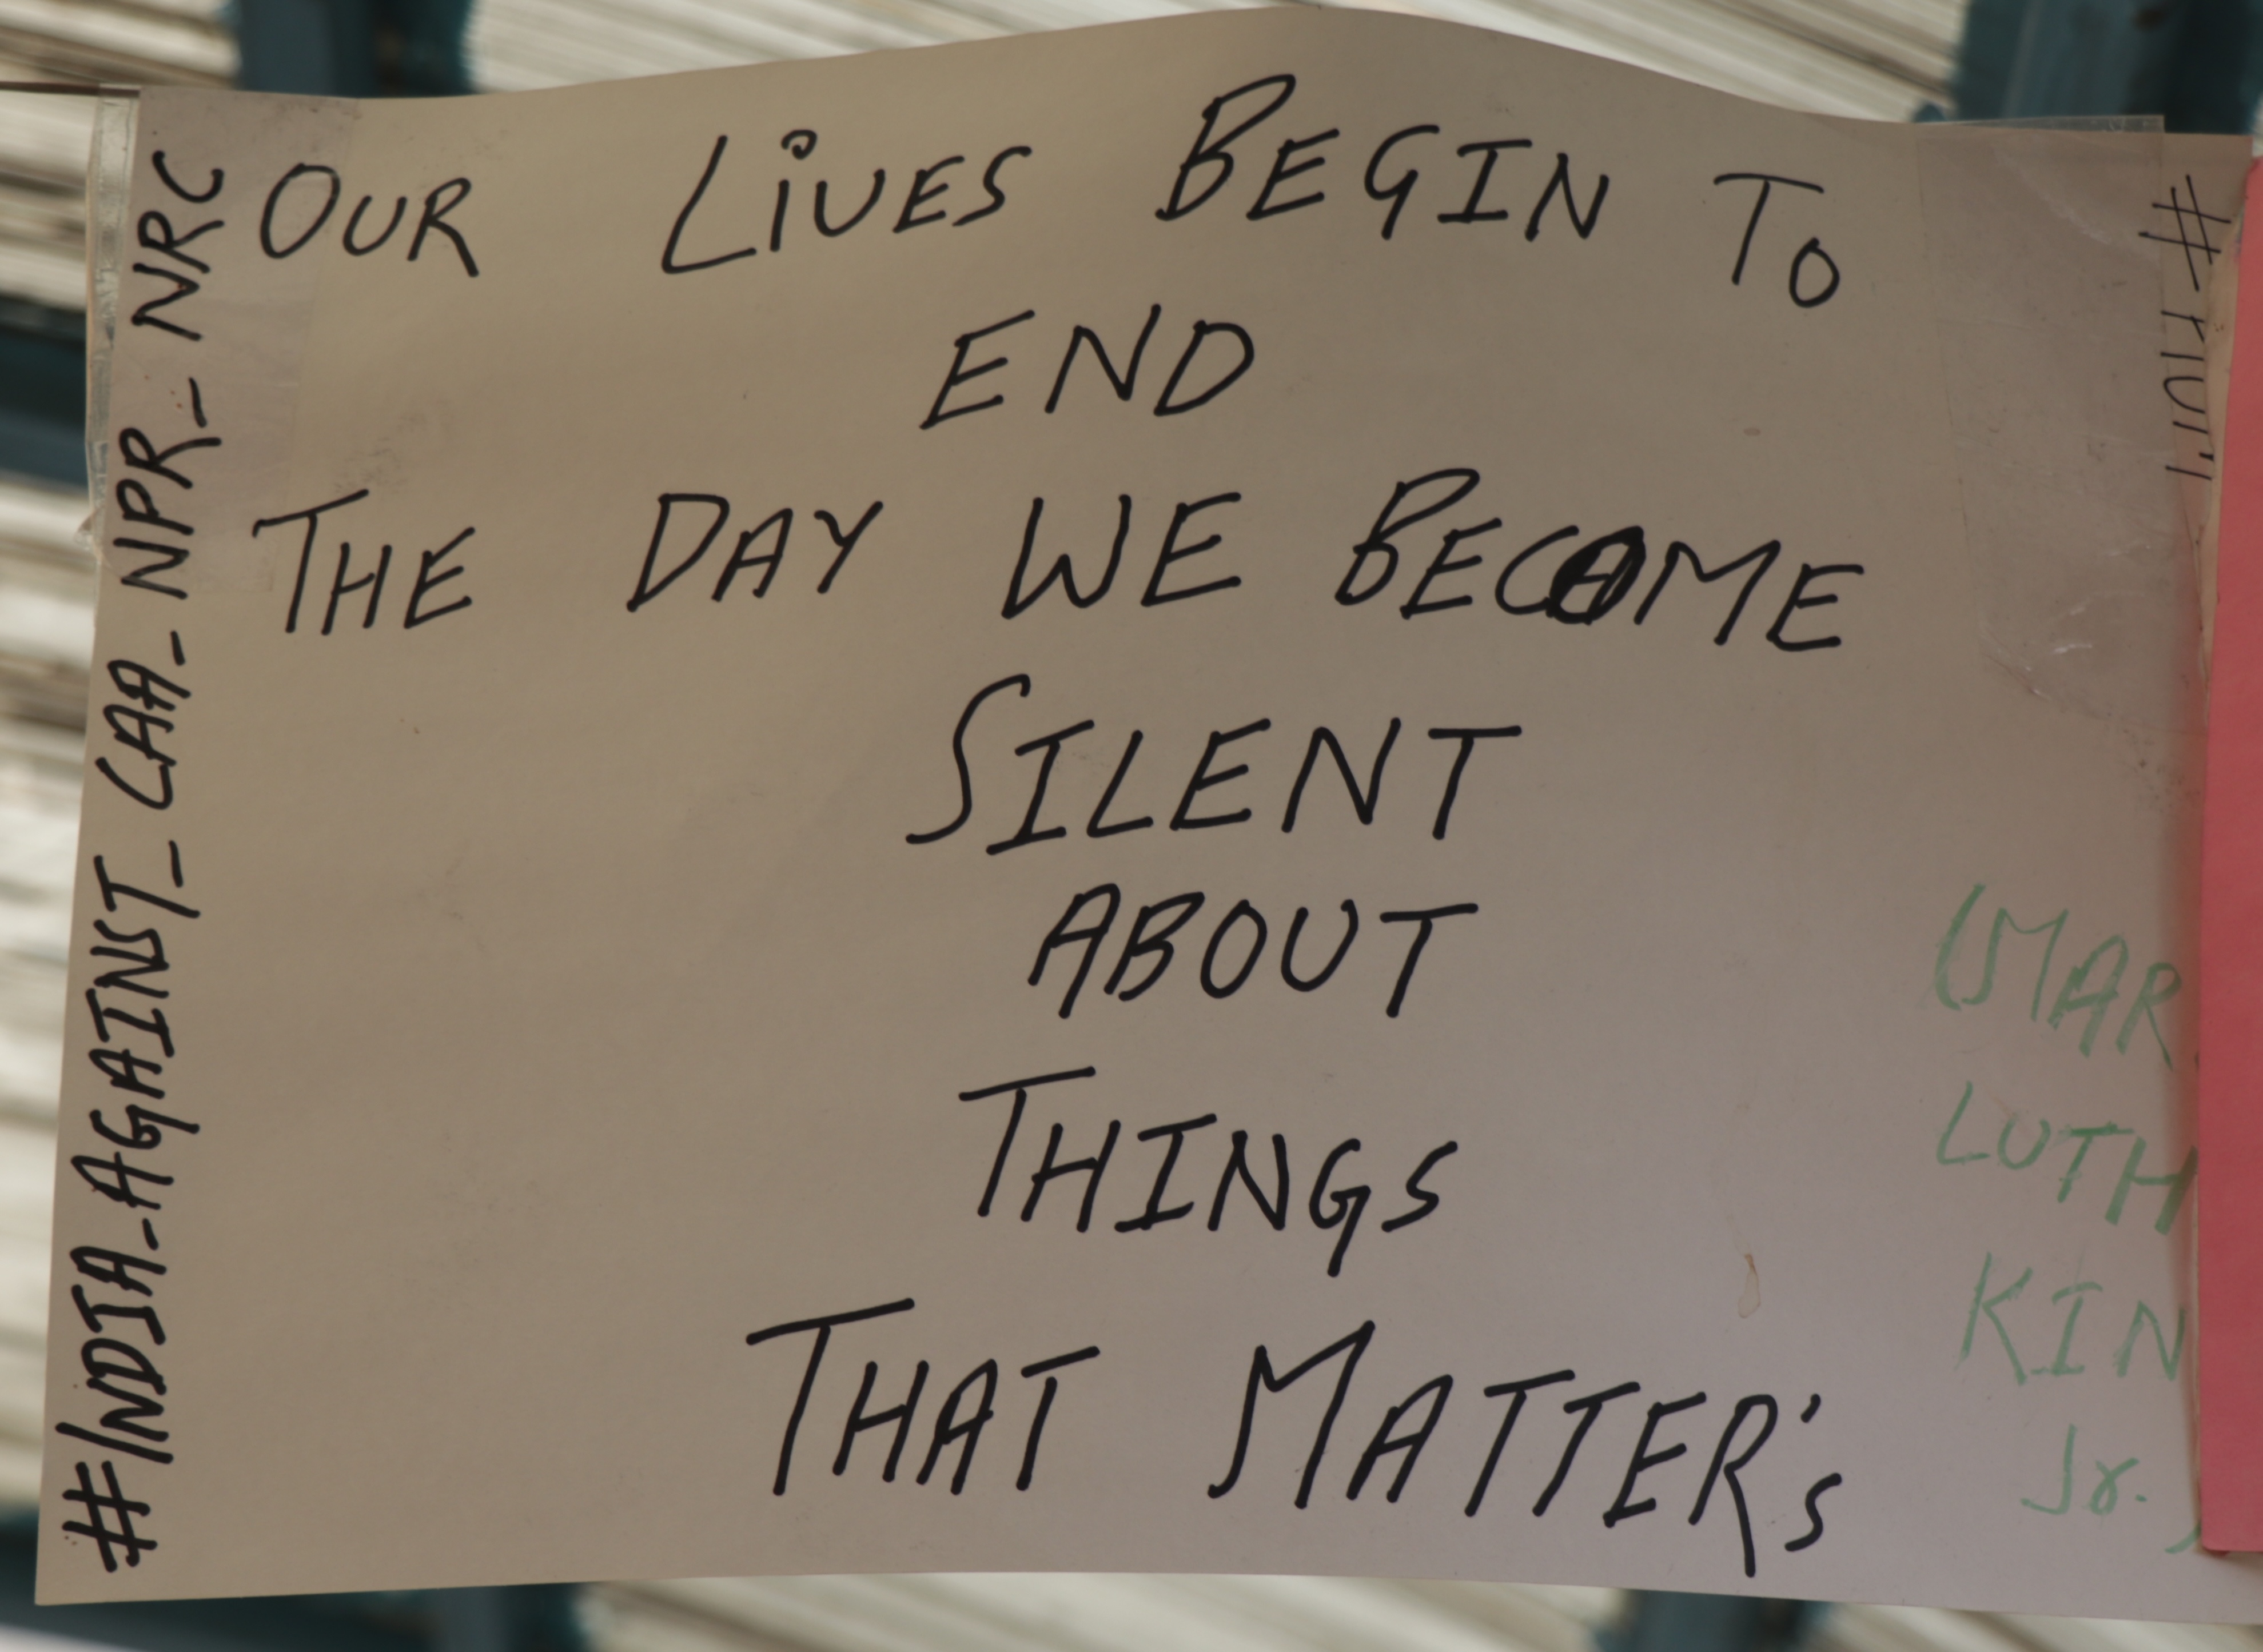 #INDIA_AGAINST_CAA_NPR_NRC
OUR LiVES BEGIN TO
END
THE DAY WE BECOME
SILENT
ABOUT
THINGS
THAT MATTER's
(MAR
LUTH
KIN
Jr.)